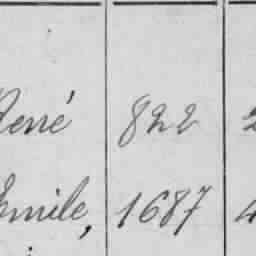 René 822 2
Emile, 1687 4